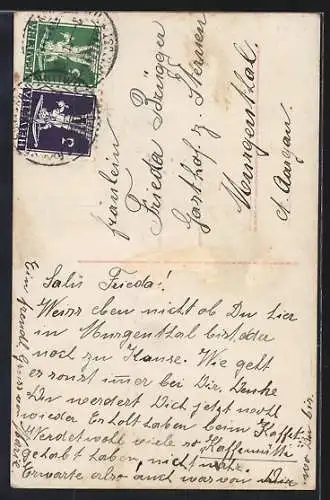 HELVETIA
HELVETIA
Fräulein
Frieda Brügger
Gasthof z. Sternen
Murgenthal.
Ct. Aargau.
Salü Frieda!
Weiss eben nicht ob Du hier
in Murgenthal bist, oder
noch zu Hause. Wie geht
es sonst imer bei Dir. Denke
Du werdert Dich jetzt wohl
wieder Erholt haben beim Kaffet
Werdet wohl viele so "Kaffemütti"
gehabt haben, nicht wahr.
Erwarte also auch was von
wo Du bis.
Ein freundl. Gruss von